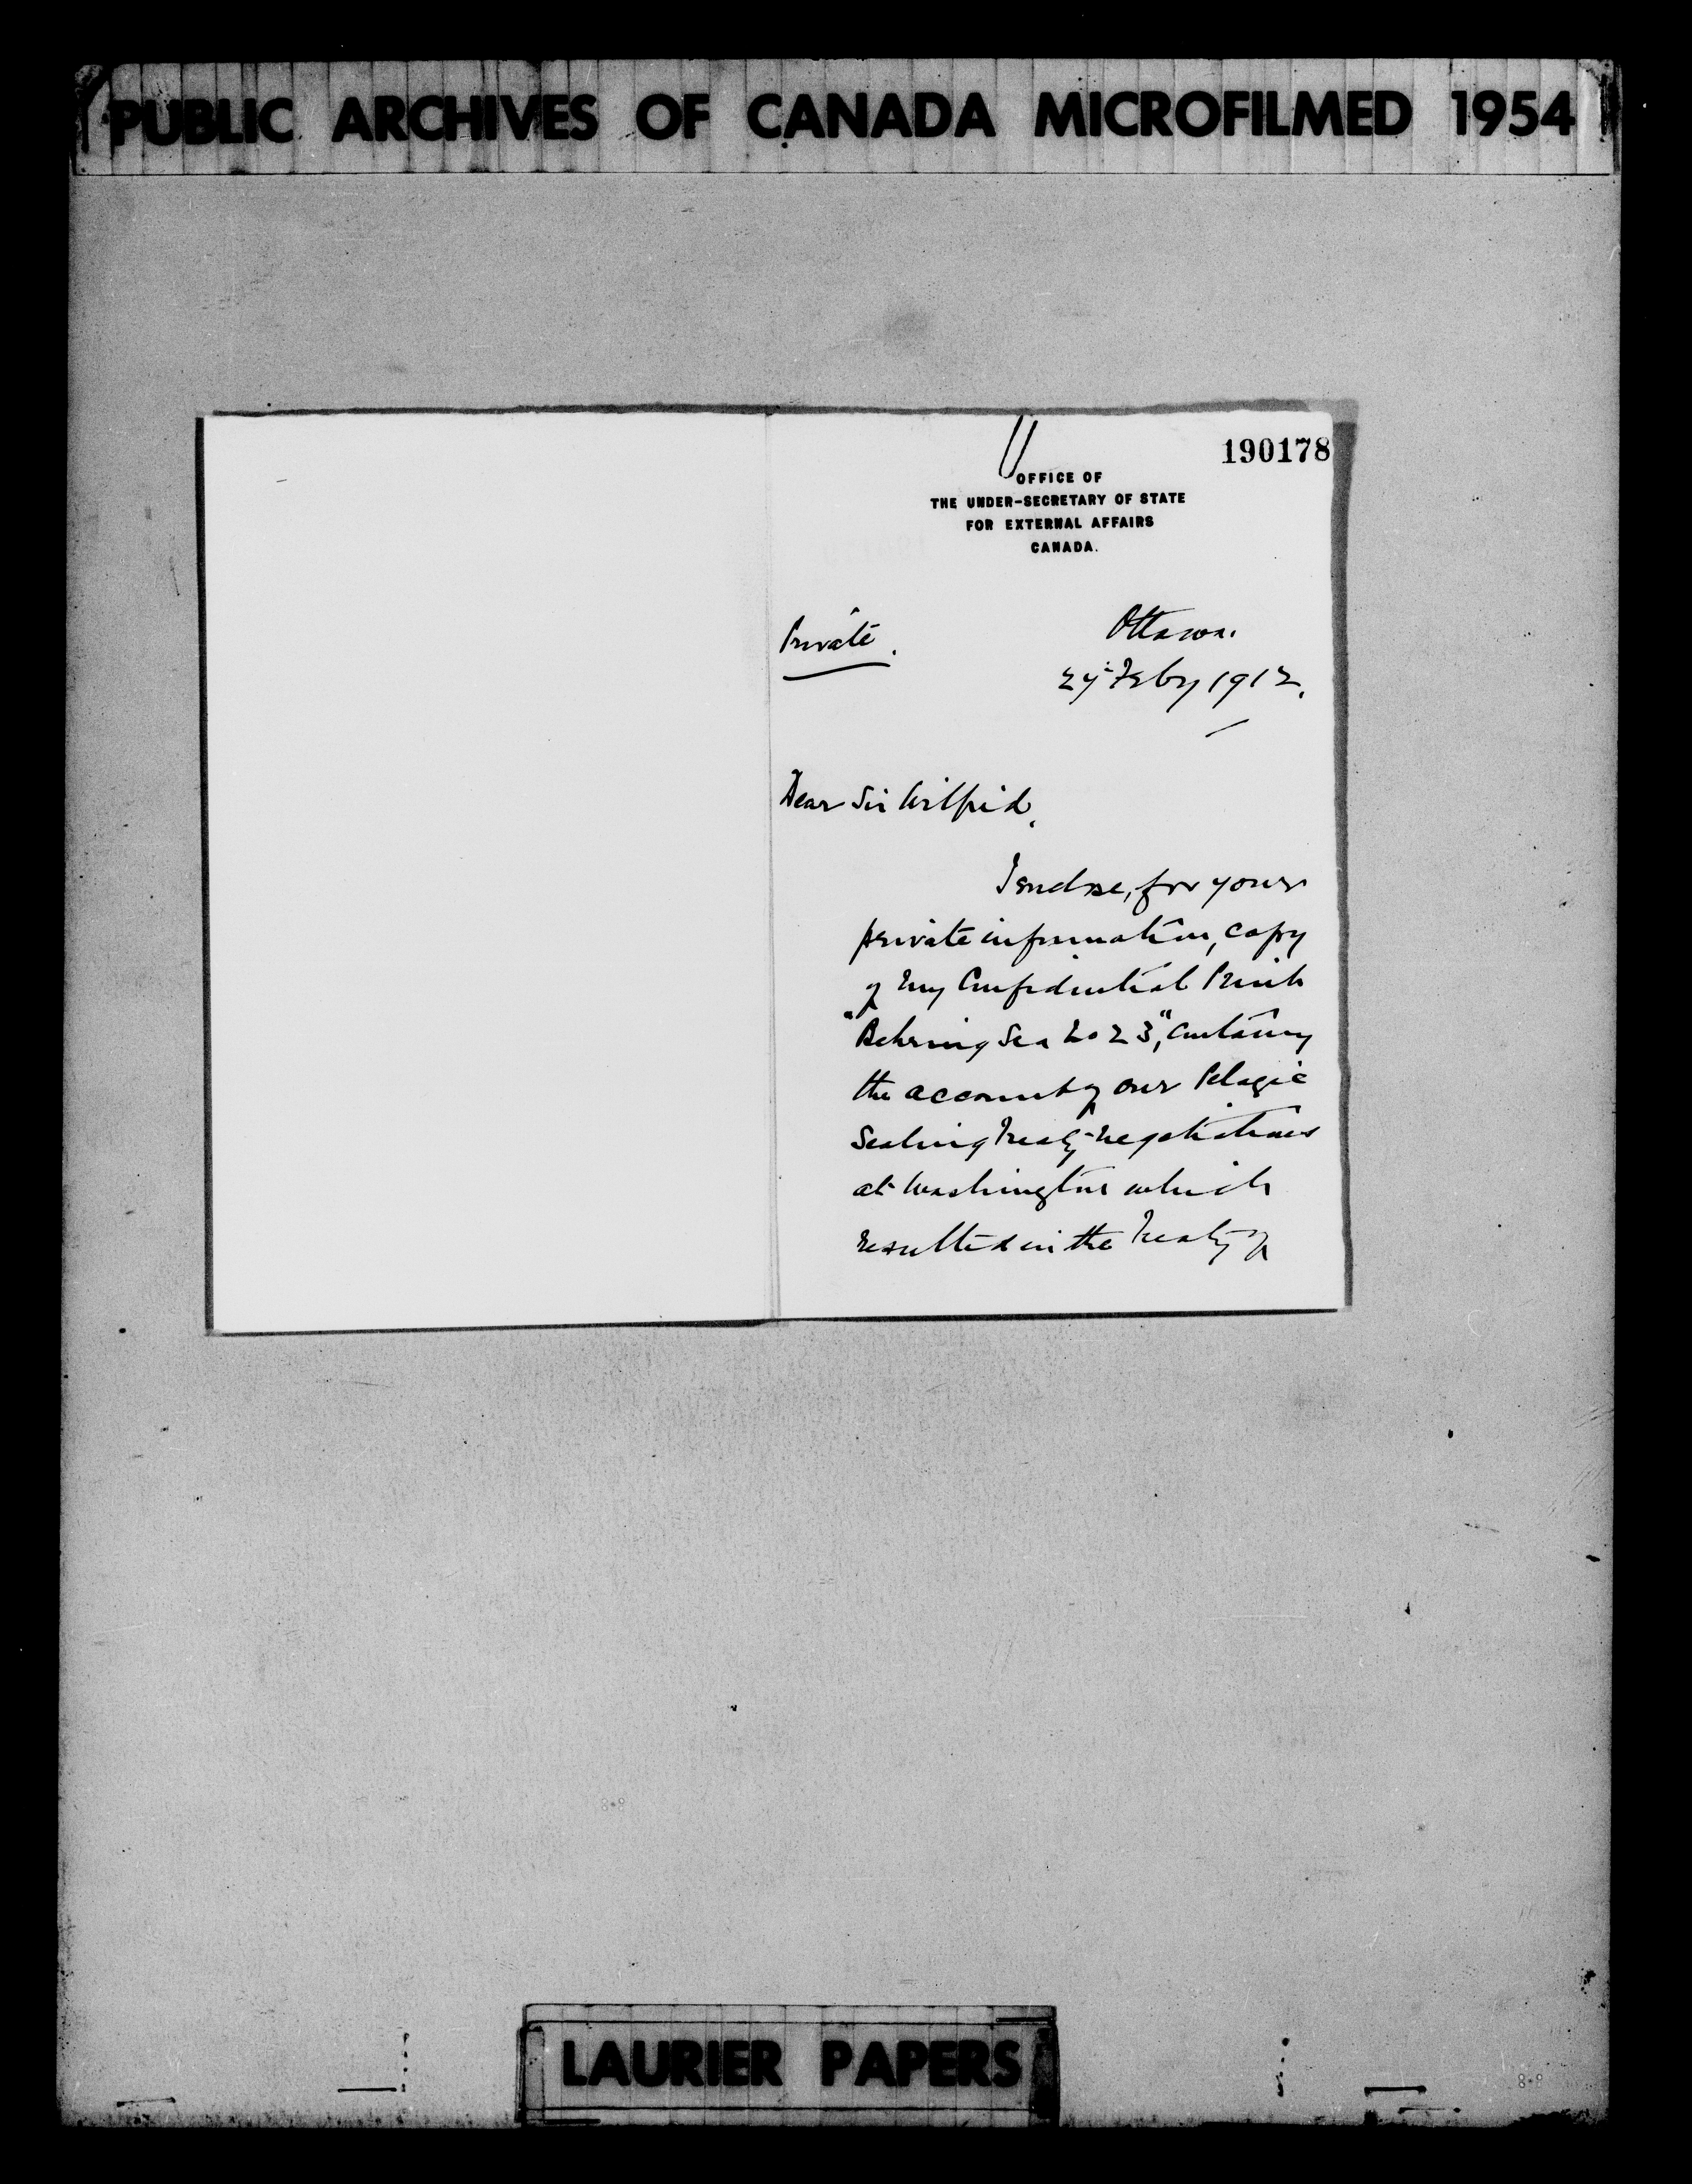 PUBLIC ARCHIVES OF CANADA MICROFILMED 1954
190178
OFFICE OF
THE UNDER-SECRETARY OF STATE
FOR EXTERNAL AFFAIRS
CANADA.
Private.
Ottawa.
27 Feby 1912.
Dear Sir Wilfrid,
I enclose, for your
private information, copy
of my Confidential Print
"Behring Sea No 23", containg
the account of our Pelagic
Sealing Treaty-negotiations
at Washington which
resulted in the Treaty of
LAURIER PAPERS